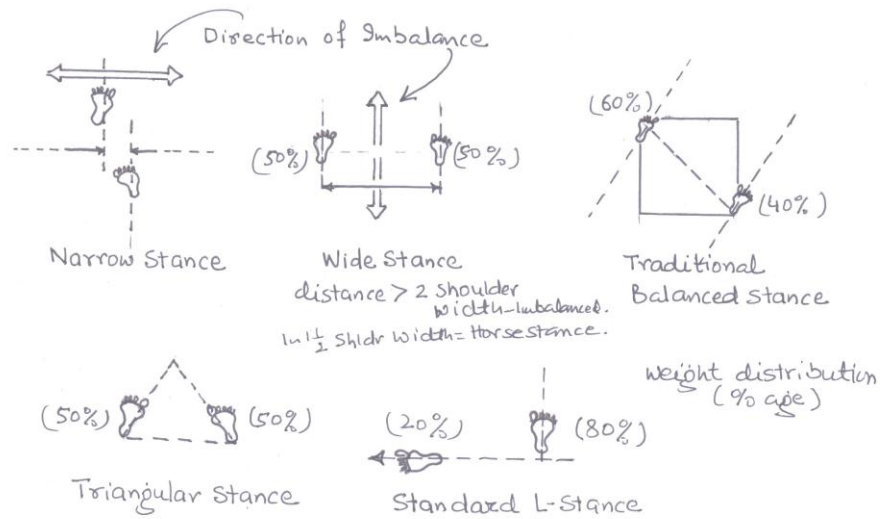 Direction of Imbalance
(50%)
(50%)
(60%)
(40%)
Narrow Stance
Wide Stance
distance > 2 Shoulder
width-Imbalanced.
In 1 1/2 Shldr width = Horse stance.
Traditional
Balanced Stance
weight distribution
(% age)
(50%)
(50%)
(20%)
(80%)
Triangular Stance
Standard L-Stance